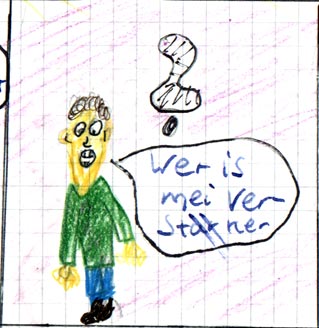 Wer is
mei Ver-
stärker